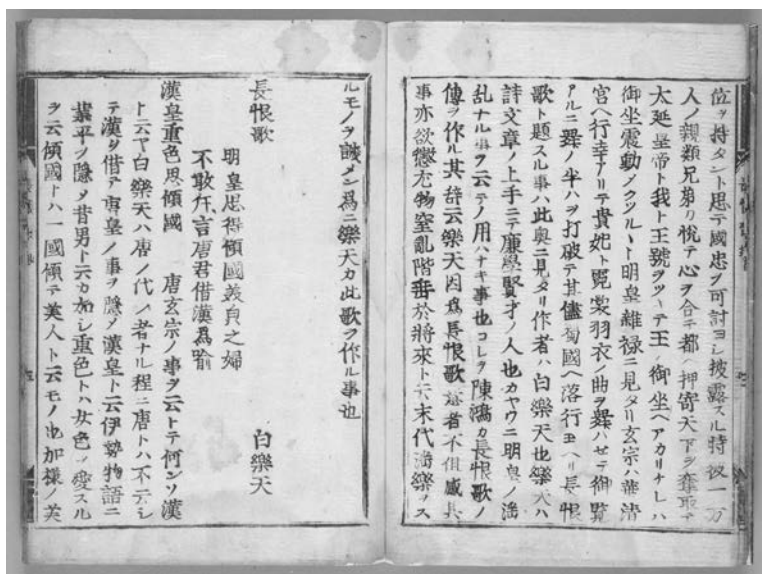 位ヲ持タント思テ國忠ヲ可討ヨシ披露スル時彼一万
人ノ親類兄弟 悦テ心ヲ合テ都ヘ押寄天下ヲ奪取テ
太延皇帝ト我ト王號ヲツ テ王ノ御坐ヘアカリナレハ
御坐震動 明皇雜禄ニ見タリ玄宗ハ華清
宮ヘ行幸アリテ貴妃ト霓裳羽衣ノ曲ヲ舞ハセテ御覧
アルニ舞ノ半ハヲ打破テ其儘蜀國ヘ落行玉ヘリ長恨
歌ト題スル事ハ此奥ニ見タリ作者ハ白樂天也樂天ハ
詩文章ノ上手ニテ廣學賢才ノ人也カヤウニ明皇ノ婬
乱ナル事ヲ云テノ用ハナキ事也コレヲ陳鴻カ長恨歌ノ
傳ヲ作ル其辞云樂天因為長恨歌意者不但感其
事亦欲懲尤物窒亂階垂於將來ト云末代婬樂ヲス
ルモノヲ誡メン為ニ樂天カ此歌ヲ作ル事也
長恨歌 白樂天
明皇思得傾國美貞之婦
不敢斥言唐君借漢為喻
漢皇重色思傾國 唐玄宗ノ事ヲ云トテ何ソ漢
ト云ヤ白樂天ハ唐ノ代ノ者ナル程ニ唐トハ不云シ
テ漢ヲ借テ唐皇ノ事ヲ隠メ漢皇ト云伊勢物語ニ
業平ヲ隠メ昔男ト云カ如シ重色トハ女色ヲ愛スル
ヲ云傾國トハ一國傾テ美人ト云モノ也加様ノ美